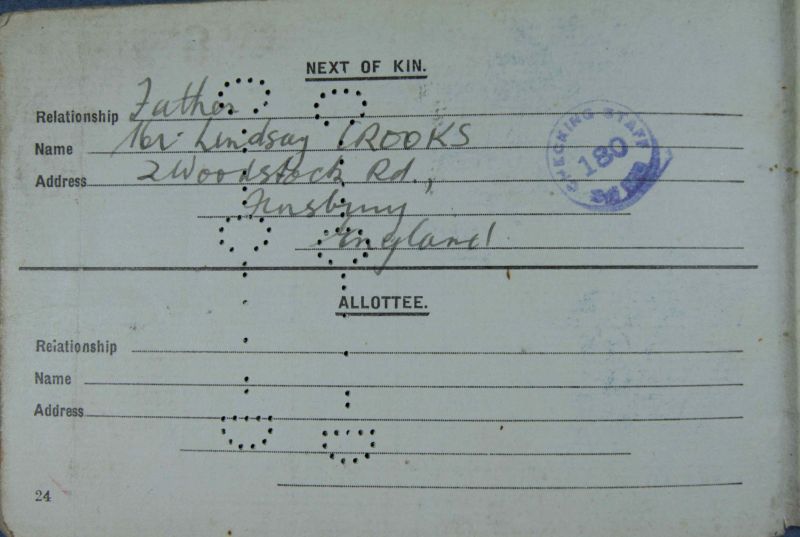 NEXT OF KIN.
Relationship Father
Name Mr. Lindsay CROOKS
Address 2 Woodstock Rd.,
Finsbury
England
CHECKING STAFF
180
ALLOTTEE.
Relationship
Name
Address
24